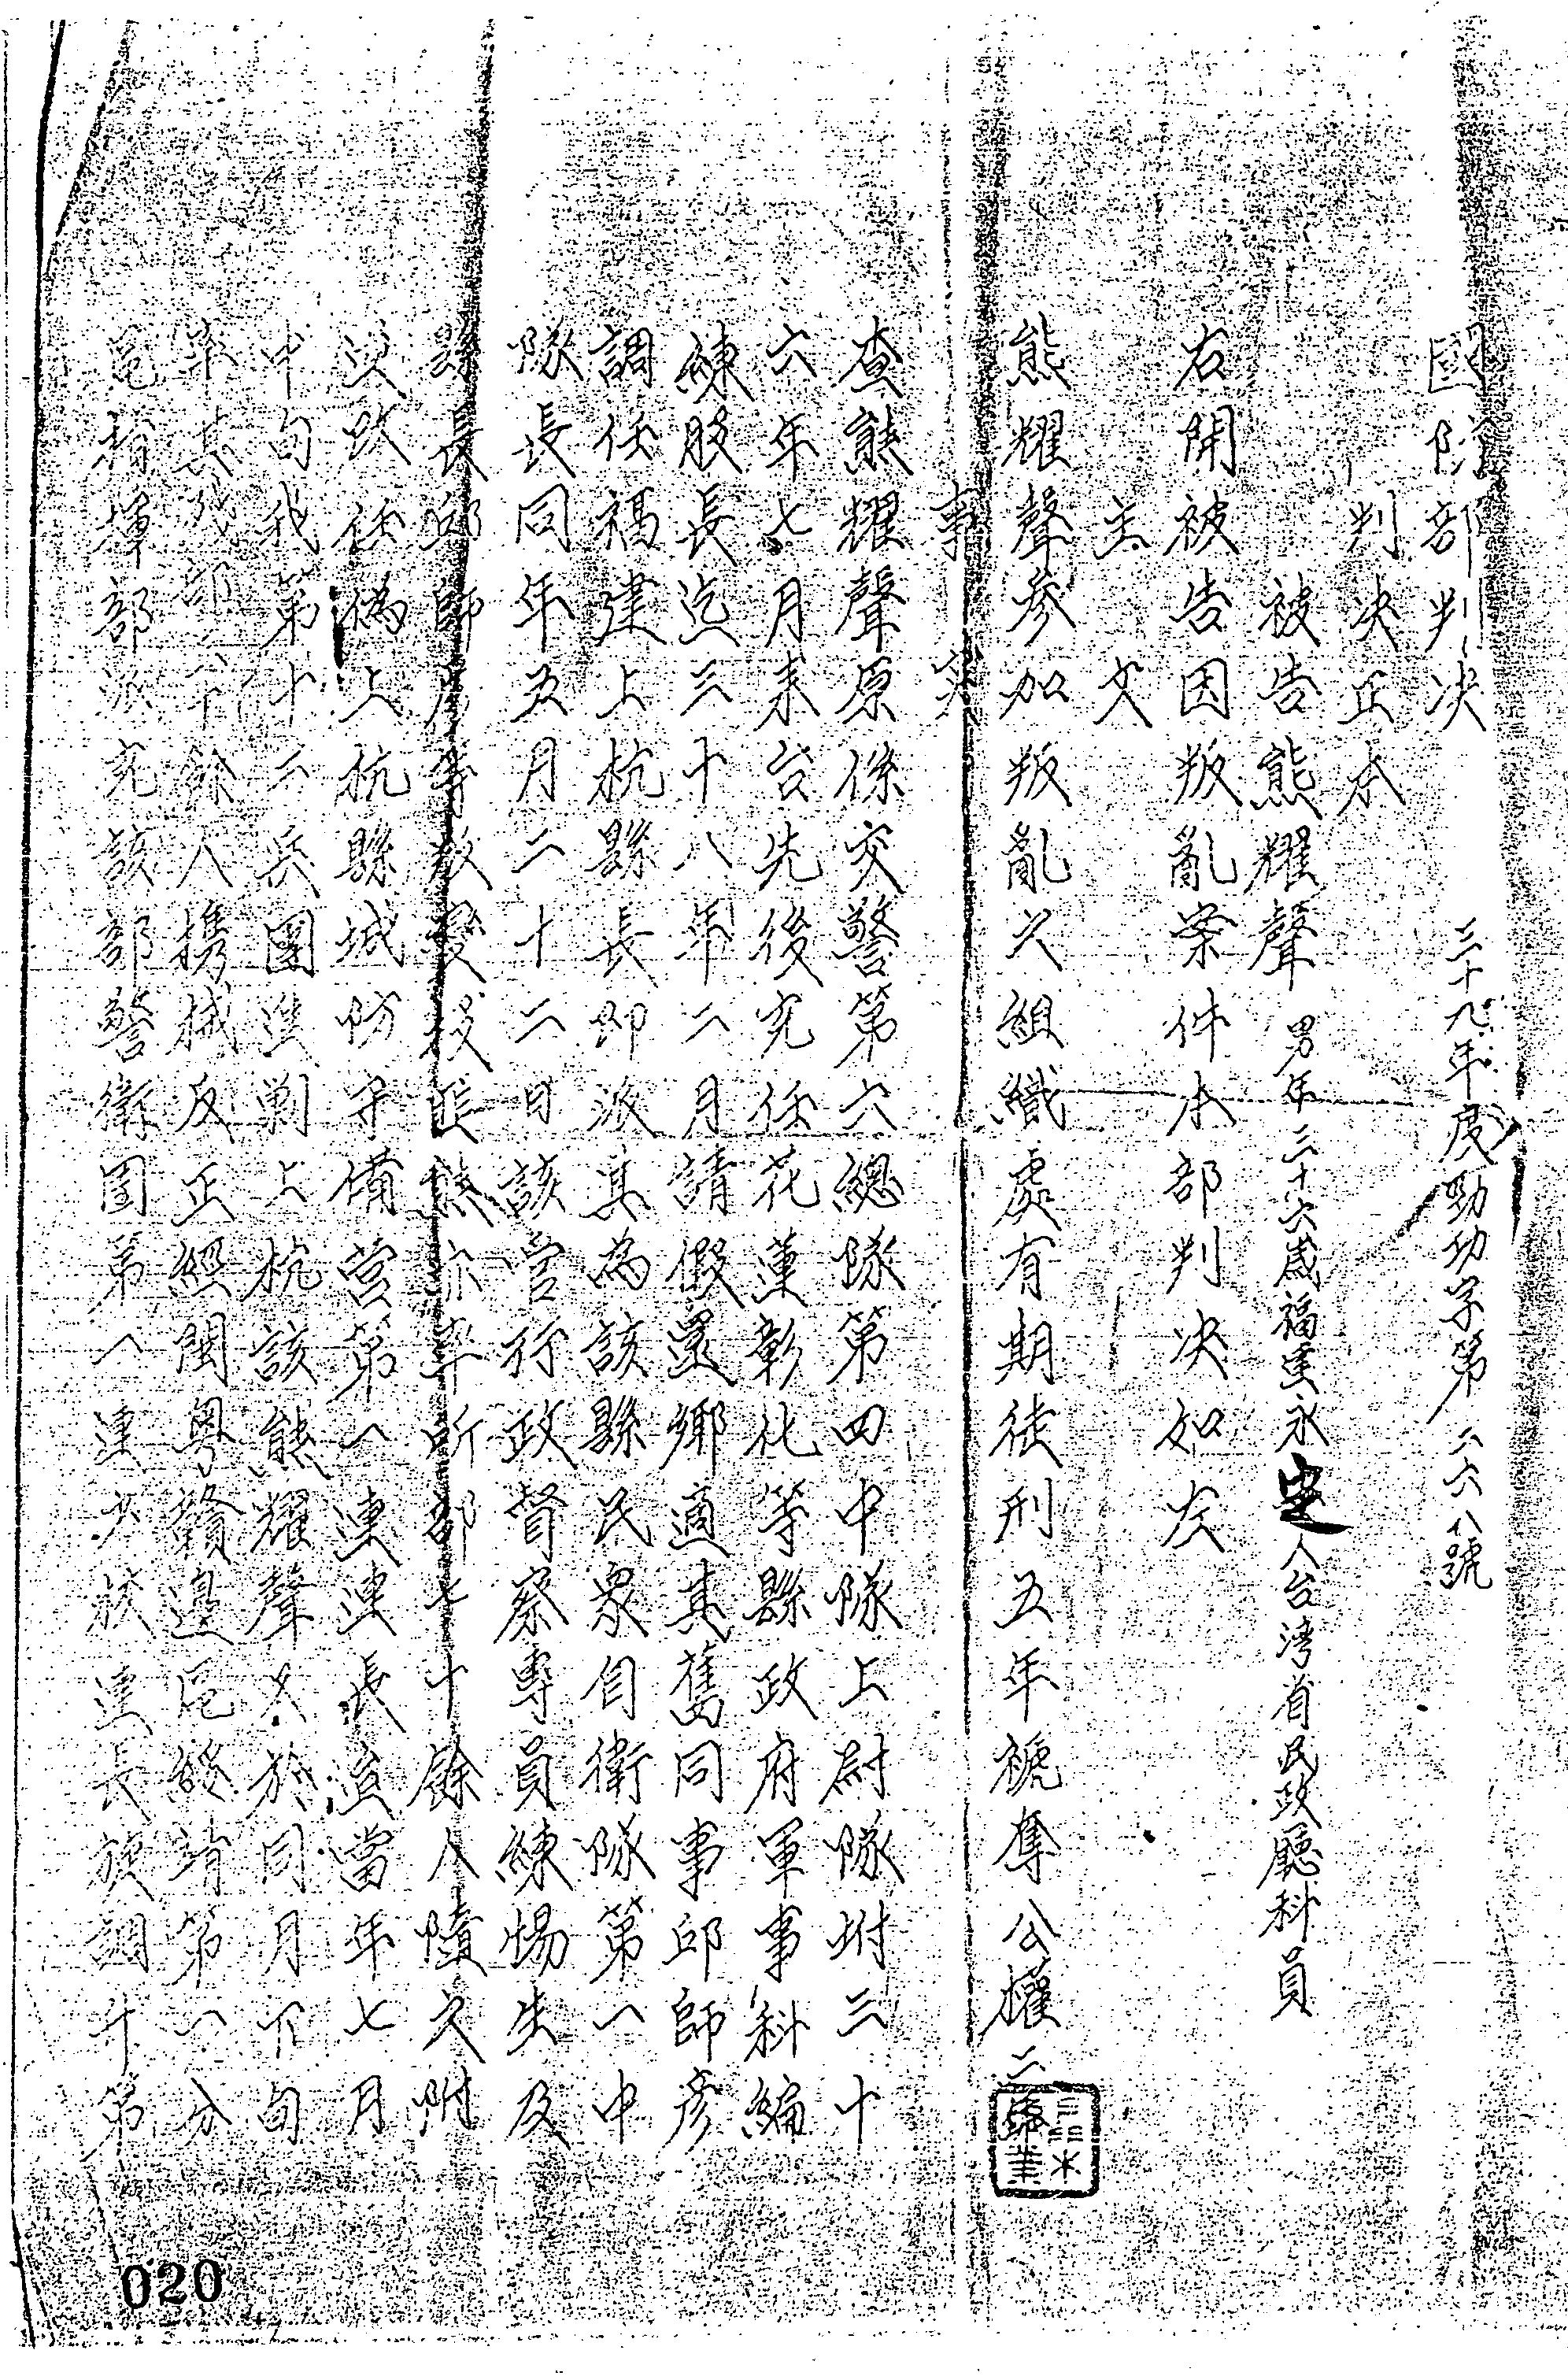 國防部判決
三十九年度勁功字第二六八號
判決正本
被告熊耀聲 男年三十六歲福建永定人台湾省民政廳科員
右開被告因叛亂案件本部判決如左
主文
熊耀聲參加叛亂之組織處有期徒刑五年褫奪公權二年
事實
查熊耀聲原係交警第六總隊第四中隊上尉隊坿三十
六年七月来台先後充任花蓮彰化等縣政府軍事科編
練股長迄三十八年二月請假還鄉適其舊同事邱師彥
調任福建上杭縣長即派其為該縣民眾自衛隊第一中
隊長同年五月二十二日該區行政督察專員練惕生及
縣長邱師彥等叛變投匪熊亦率所部七十餘人隨之附
逆改任偽上杭縣城防守備营第一連連長迨當年七月
中旬我第十二兵團進剿上杭該熊耀聲又於同月下旬
率其殘部二十餘人携械反正經閩粤贛邊區綏靖第一分
區指揮部派充該部警衛團第一連少校連長旋調升第
020